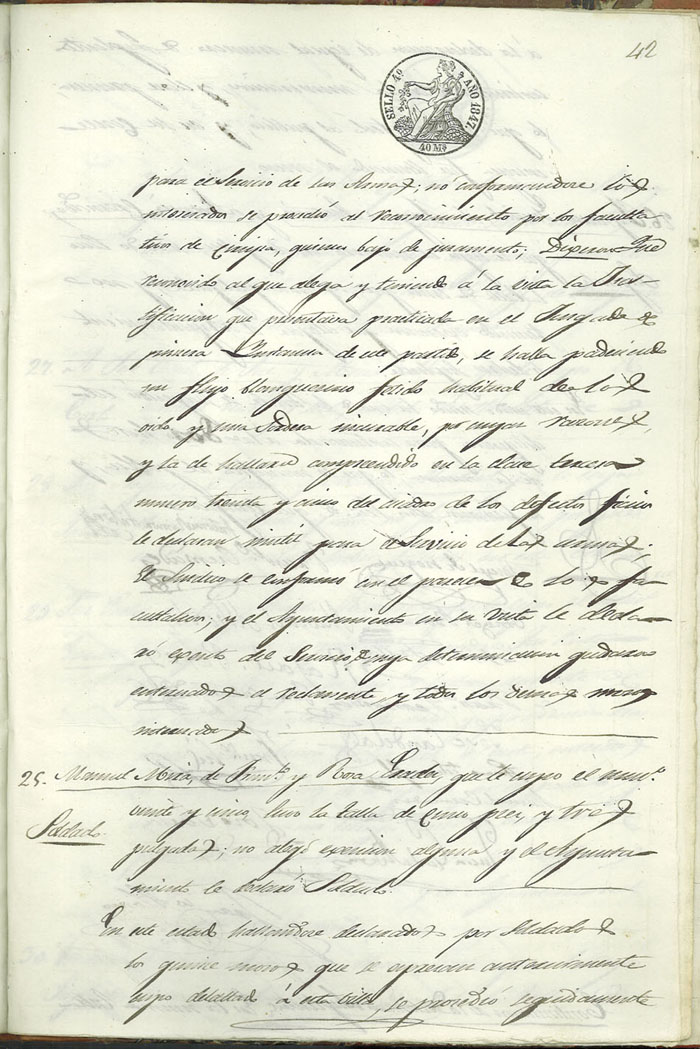 42
SELLO 4º AÑO 1847.
40 Mṣ
para el Servicio de las Armas; no conformandose los
interesados se procedió al reconocimiento por los faculta
tivos de cirujia, quienes bajo de juramento, Dixeron: Que
reconocido al que alega y teniendo á la vista la Jus-
tificacion que presentava practicada en el Juzgado de
primera Instancia de este partido, se halla padeciendo
un flujo blanquecino fetido habitual de los
oidos y una Sordera incurable, por cuyas razones,
y la de hallarse comprendido en la clase tercera
numero treinta y cinco del cuadro de los defectos fisicos
le declaran inutil para el Servicio de las armas;
El Sindico se conformó con el parecer de los fa-
cultativos; y el Ayuntamiento en su vista le decla-
ró exento del Servicio, cuya determinacion quedaron
enterados el reclamante, y todos los demas mozos
interesados
25. Manuel Mira, de Vimte. y Rosa, que le cupo el numo.
veinte y cinco, tuvo la talla de cinco pies y tres
Soldado
pulgadas; no alegó exencion alguna y el Ayunta-
miento le declaró Soldado.
En este estado hallandose declarados por Soldados
los quince mozos que se espresan anteriormente
cupo detallado á esta villa, se procedió seguidamente